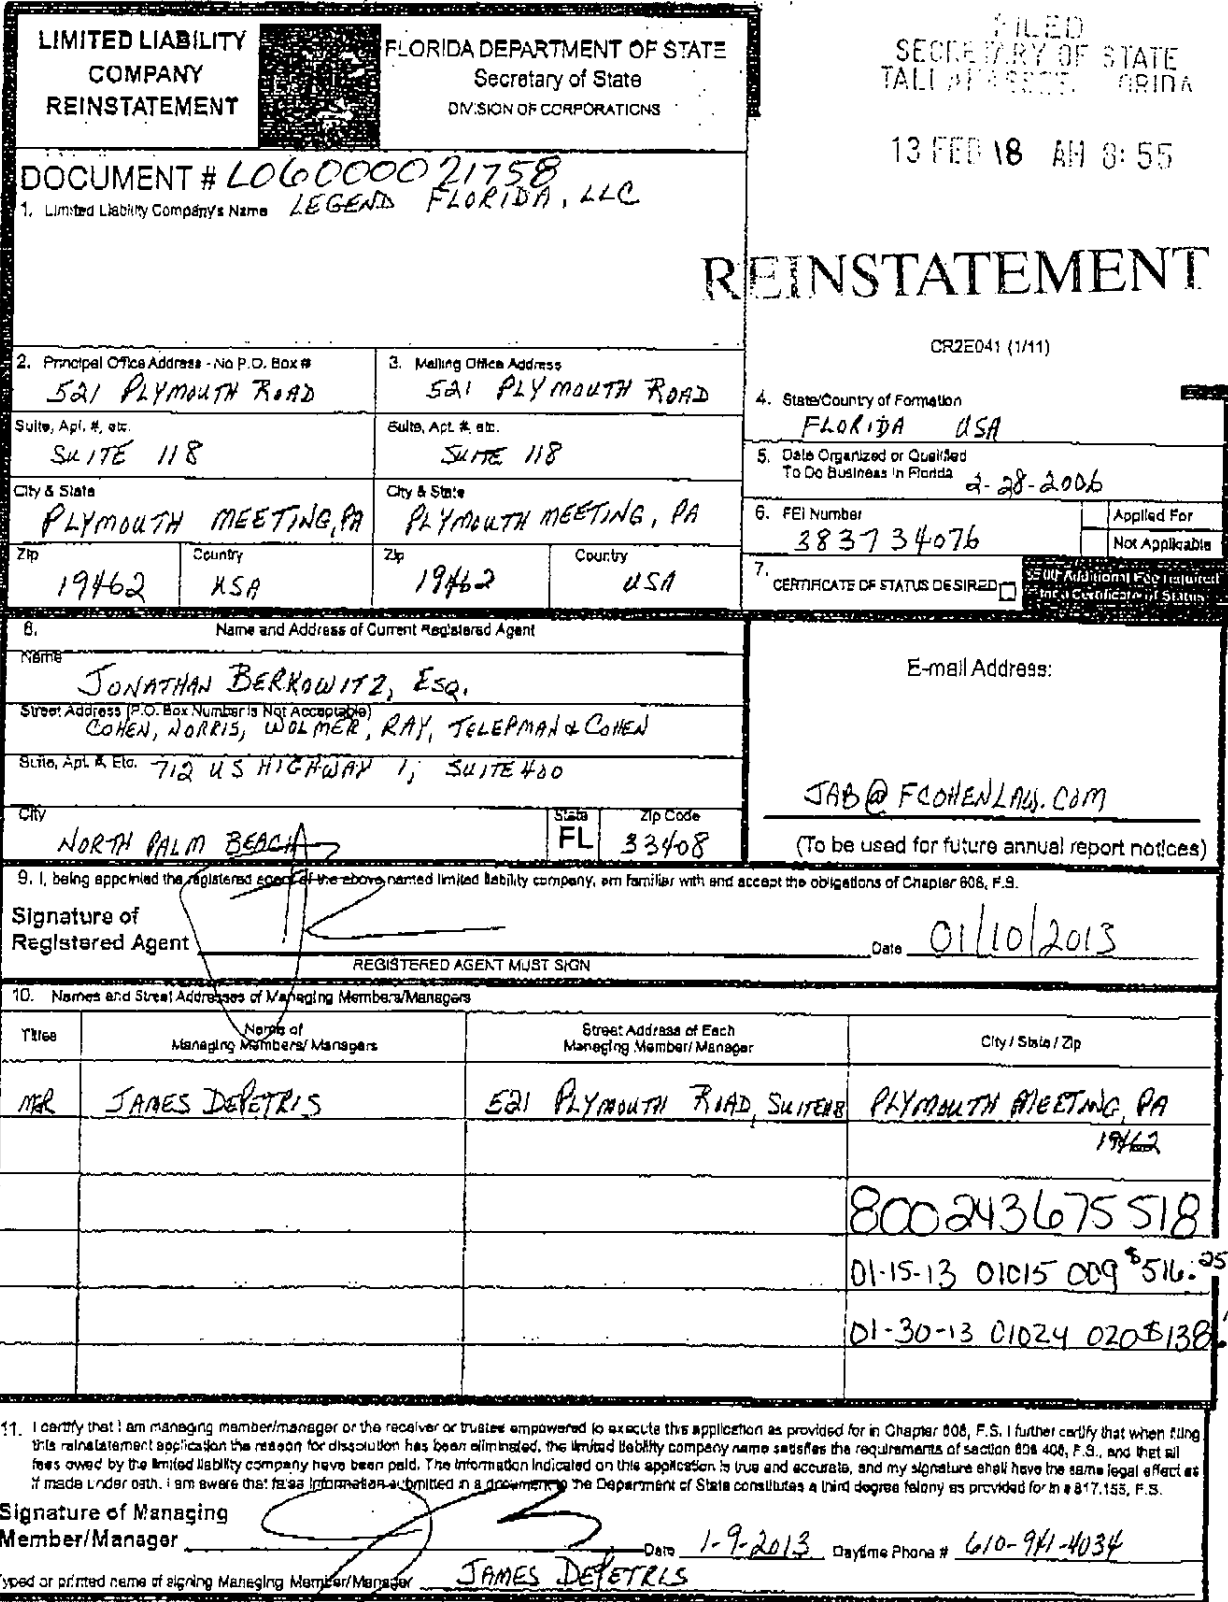 LIMITED LIABILITY
COMPANY
REINSTATEMENT
FLORIDA DEPARTMENT OF STATE
Secretary of State
DIVISION OF CORPORATIONS
FILED
SECRETARY OF STATE
TALLAHASSEE, FLORIDA
13 FEB 18 AM 8:55
DOCUMENT # L06000021758
1. Limited Liability Company's Name LEGEND FLORIDA, LLC
REINSTATEMENT
CR2E041 (1/11)
2. Principal Office Address - No P.O. Box #
521 PLYMOUTH ROAD
3. Mailing Office Address
521 PLYMOUTH ROAD
Suite, Apt. #, etc.
SUITE 118
Suite, Apt. #, etc.
SUITE 118
City & State
PLYMOUTH MEETING, PA
City & State
PLYMOUTH MEETING, PA
Zip
19462
Country
USA
Zip
19462
Country
USA
4. State/Country of Formation
FLORIDA USA
5. Date Organized or Qualified
To Do Business in Florida 2-28-2006
6. FEI Number
383734076
Applied For
Not Applicable
7. CERTIFICATE OF STATUS DESIRED
$5.00 Additional Fee required
for a Certificate of Status
8. Name and Address of Current Registered Agent
Name
JONATHAN BERKOWITZ, ESQ.
Street Address (P.O. Box Number is Not Acceptable)
COHEN, NORRIS, WOLMER, RAY, TELEPMAN & COHEN
Suite, Apt. #, Etc. 712 US HIGHWAY 1, SUITE 400
City
NORTH PALM BEACH
State
FL
Zip Code
33408
E-mail Address:
JAB@FCOHENLAW.COM
(To be used for future annual report notices)
9. I, being appointed the registered agent of the above named limited liability company, am familiar with and accept the obligations of Chapter 608, F.S.
Signature of
Registered Agent
Date 01/10/2013
REGISTERED AGENT MUST SIGN
10. Names and Street Addresses of Managing Members/Managers
Titles
Name of
Managing Members/ Managers
Street Address of Each
Managing Member/ Manager
City / State / Zip
MGR JAMES DEPETRIS 521 PLYMOUTH ROAD, SUITE 118 PLYMOUTH MEETING, PA
19462
800243675518
01-15-13 01015 009 $516.25
01-30-13 01024 020 $138
11. I certify that I am managing member/manager or the receiver or trustee empowered to execute this application as provided for in Chapter 608, F.S. I further certify that when filing
this reinstatement application the reason for dissolution has been eliminated, the limited liability company name satisfies the requirements of section 608.406, F.S., and that all
fees owed by the limited liability company have been paid. The information indicated on this application is true and accurate, and my signature shall have the same legal effect as
if made under oath. I am aware that false information submitted in a document to the Department of State constitutes a third degree felony as provided for in s 817.155, F.S.
Signature of Managing
Member/Manager
Date 1-9-2013 Daytime Phone # 610-941-4034
Typed or printed name of signing Managing Member/Manager JAMES DEPETRIS